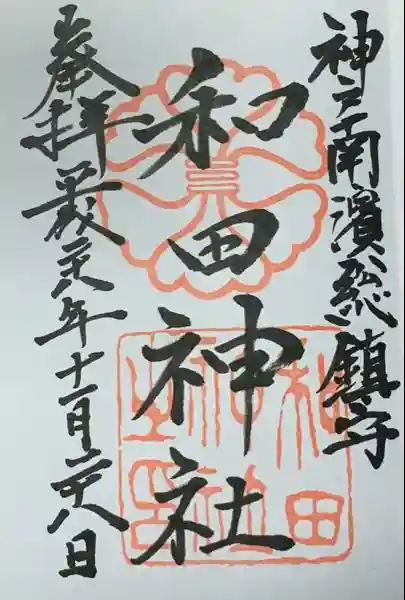 神戸南濱総鎮守
和田神社
奉拝 平成廿八年十一月廿八日
和田
神社
之印